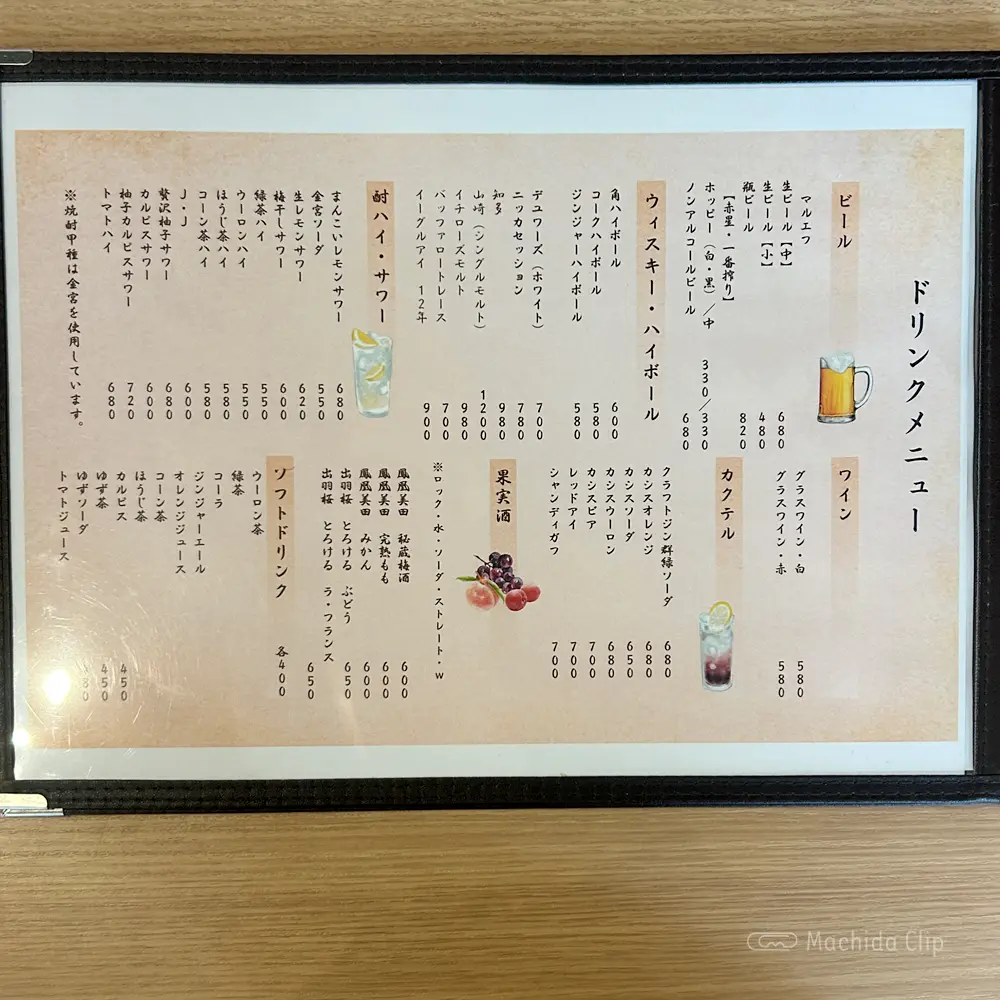 ドリンクメニュー
ビール
マルエフ
生ビール【中】 680
生ビール【小】 480
瓶ビール 820
【赤星・一番搾り】
ホッピー(白・黒)/中 330/330
ノンアルコールビール 680
ウィスキー・ハイボール
角ハイボール 600
コークハイボール 580
ジンジャーハイボール 580
デュワーズ(ホワイト) 700
ニッカセッション 780
知多 980
山崎(シングルモルト) 1200
イチローズモルト 980
バッファロートレース 700
イーグルアイ 12年 900
酎ハイ・サワー
まんこいレモンサワー 680
金宮ソーダ 550
生レモンサワー 620
梅干しサワー 600
緑茶ハイ 550
ウーロンハイ 550
ほうじ茶ハイ 580
コーン茶ハイ 580
J・J 600
贅沢柚子サワー 680
カルピスサワー 600
柚子カルピスサワー 720
トマトハイ 680
※焼酎甲種は金宮を使用しています。
ワイン
グラスワイン・白 580
グラスワイン・赤 580
カクテル
クラフトジン群緑ソーダ 680
カシスオレンジ 680
カシスソーダ 650
カシスウーロン 680
カシスビア 700
レッドアイ 700
シャンディガフ 700
果実酒
※ロック・水・ソーダ・ストレート・w
鳳凰美田 秘蔵梅酒 600
鳳凰美田 完熟もも 600
鳳凰美田 みかん 600
出羽桜 とろける ぶどう 650
出羽桜 とろける ラ・フランス 650
ソフトドリンク 各400
ウーロン茶
緑茶
コーラ
ジンジャーエール
オレンジジュース
コーン茶
ほうじ茶
カルピス 450
ゆず茶 450
ゆずソーダ
トマトジュース
Machida Clip